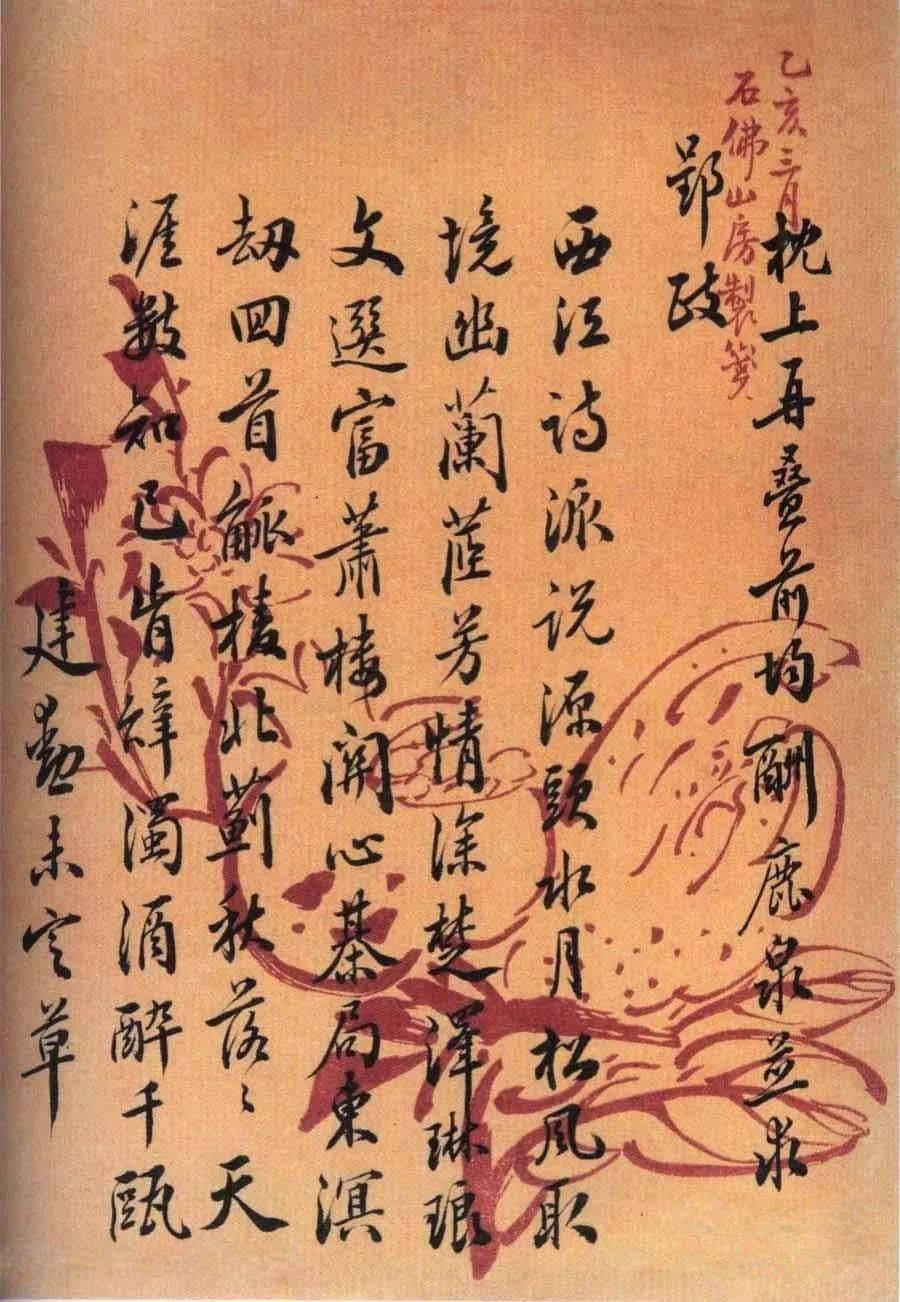 乙亥三月
石佛山房製箋
枕上再疊前均酬鹿泉並求
郢政
西江詩派説源頭水月松風取
境幽蘭茝芳情深楚澤琳琅
文選富蕭樓關心棊局東溟
劫回首觚棱北薊秋落〻天
涯數知己肯辭濁酒醉千甌
建 未定草